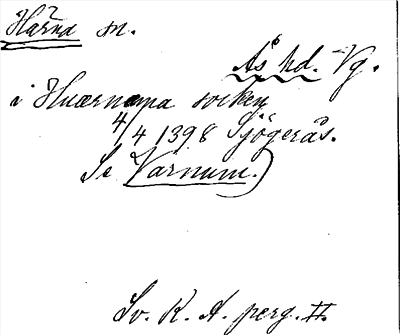 Härna sn.
Ås hd. Vg.
i Hværnema soken
4/4 1398 Sjögerås.
Se Varnum.)
Sv. R. A. perg. II.